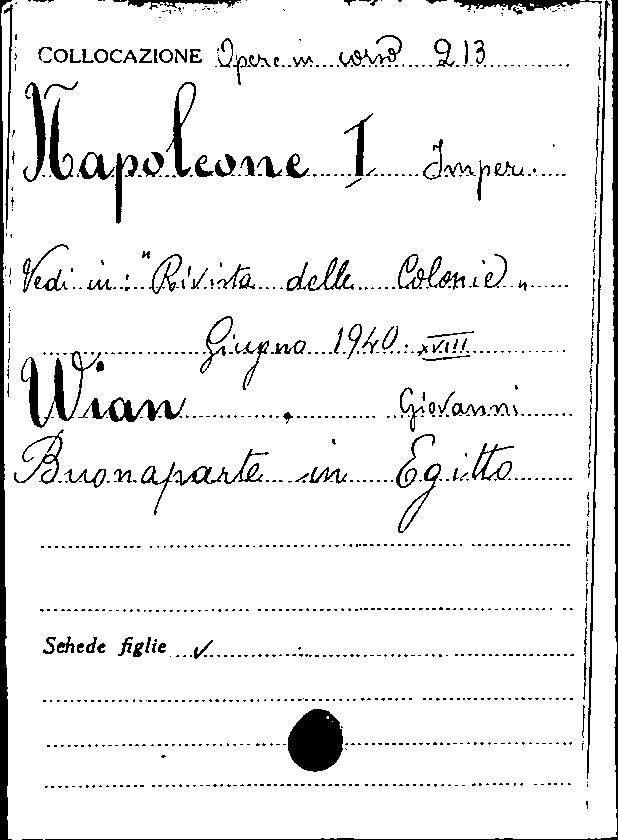 COLLOCAZIONE Opere in corso 213
Napoleone I Imper.
Vedi in: "Rivista delle Colonie"
Giugno 1940. XVIII
Wian, Giovanni
Buonaparte in Egitto
Schede figlie ✓